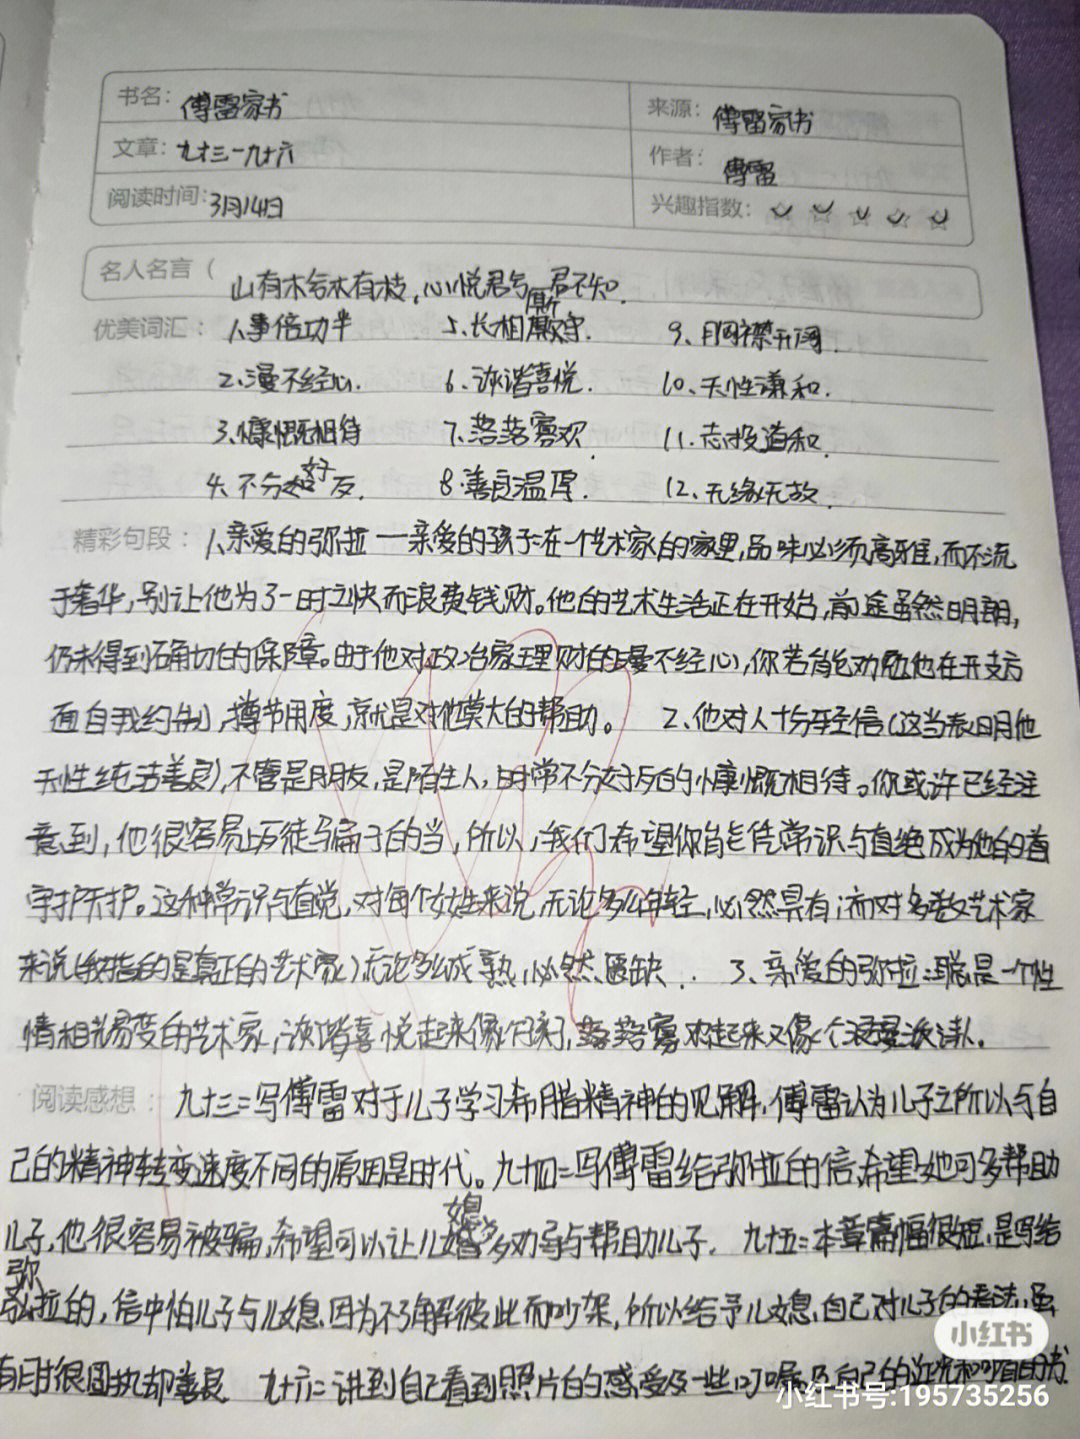 书名：傅雷家书 来源：傅雷家书
文章：九十三一九十六 作者：傅雷
阅读时间：3月14日 兴趣指数：
名人名言（ 山有木兮木有枝，心悦君兮君不知.
优美词汇：1、事倍功半 5、长相厮守. 9、胸襟开阔.
2、漫不经心. 6、诙谐喜悦. 10、天性谦和.
3、慷慨相待 7、落落寡欢. 11、志投道和.
4、不分好友. 8、善良温厚. 12、无缘无故.
精彩句段：1、亲爱的弥拉一亲爱的孩子:在一个艺术家的家里,品味必须高雅,而不流
于奢华,别让他为了一时之快而浪费钱财。他的艺术生活正在开始,前途虽然明朗,
仍未得到确切的保障。由于他对政治家理财的漫不经心,你若能劝勉他在开支方
面自我约制,撙节用度,就是对他莫大的帮助。 2、他对人十分轻信(这当表明他
天性纯洁善良),不管是朋友,是陌生人,时常不分好歹的慷慨相待。你或许已经注
意到,他很容易上歹徒与骗子的当,所以,我们希望你能凭常识与直绝成为他的首
守护护。这种常识与直觉,对每个女性来说,无论多么年轻,必然具有;而对多数艺术家
来说(我指的是真正的艺术家)无论多么成熟,必然匮缺. 3、亲爱的弥拉:聪是一个性
情相当易变的艺术家,诙谐喜悦起来像个孩子,落落寡欢起来又像个浪漫派诗人。
阅读感想：九十三:写傅雷对于儿子学习希腊精神的见解,傅雷认为儿子之所以与自
己的精神转变速度不同的原因是时代。九十四:写傅雷给弥拉的信,希望她可多帮助
儿子,他很容易被骗,希望可以让儿媳多劝导与帮助儿子. 九十五:本章篇幅很短,是写给
弥拉的,信中怕儿子与儿媳,因为不了解彼此而吵架,所以给予儿媳,自己对儿子的看法,虽
有时很固执却善良 九十六:讲到自己看到照片的感受及一些叮嘱及自己的近况和
小红书
小红书号:195735256